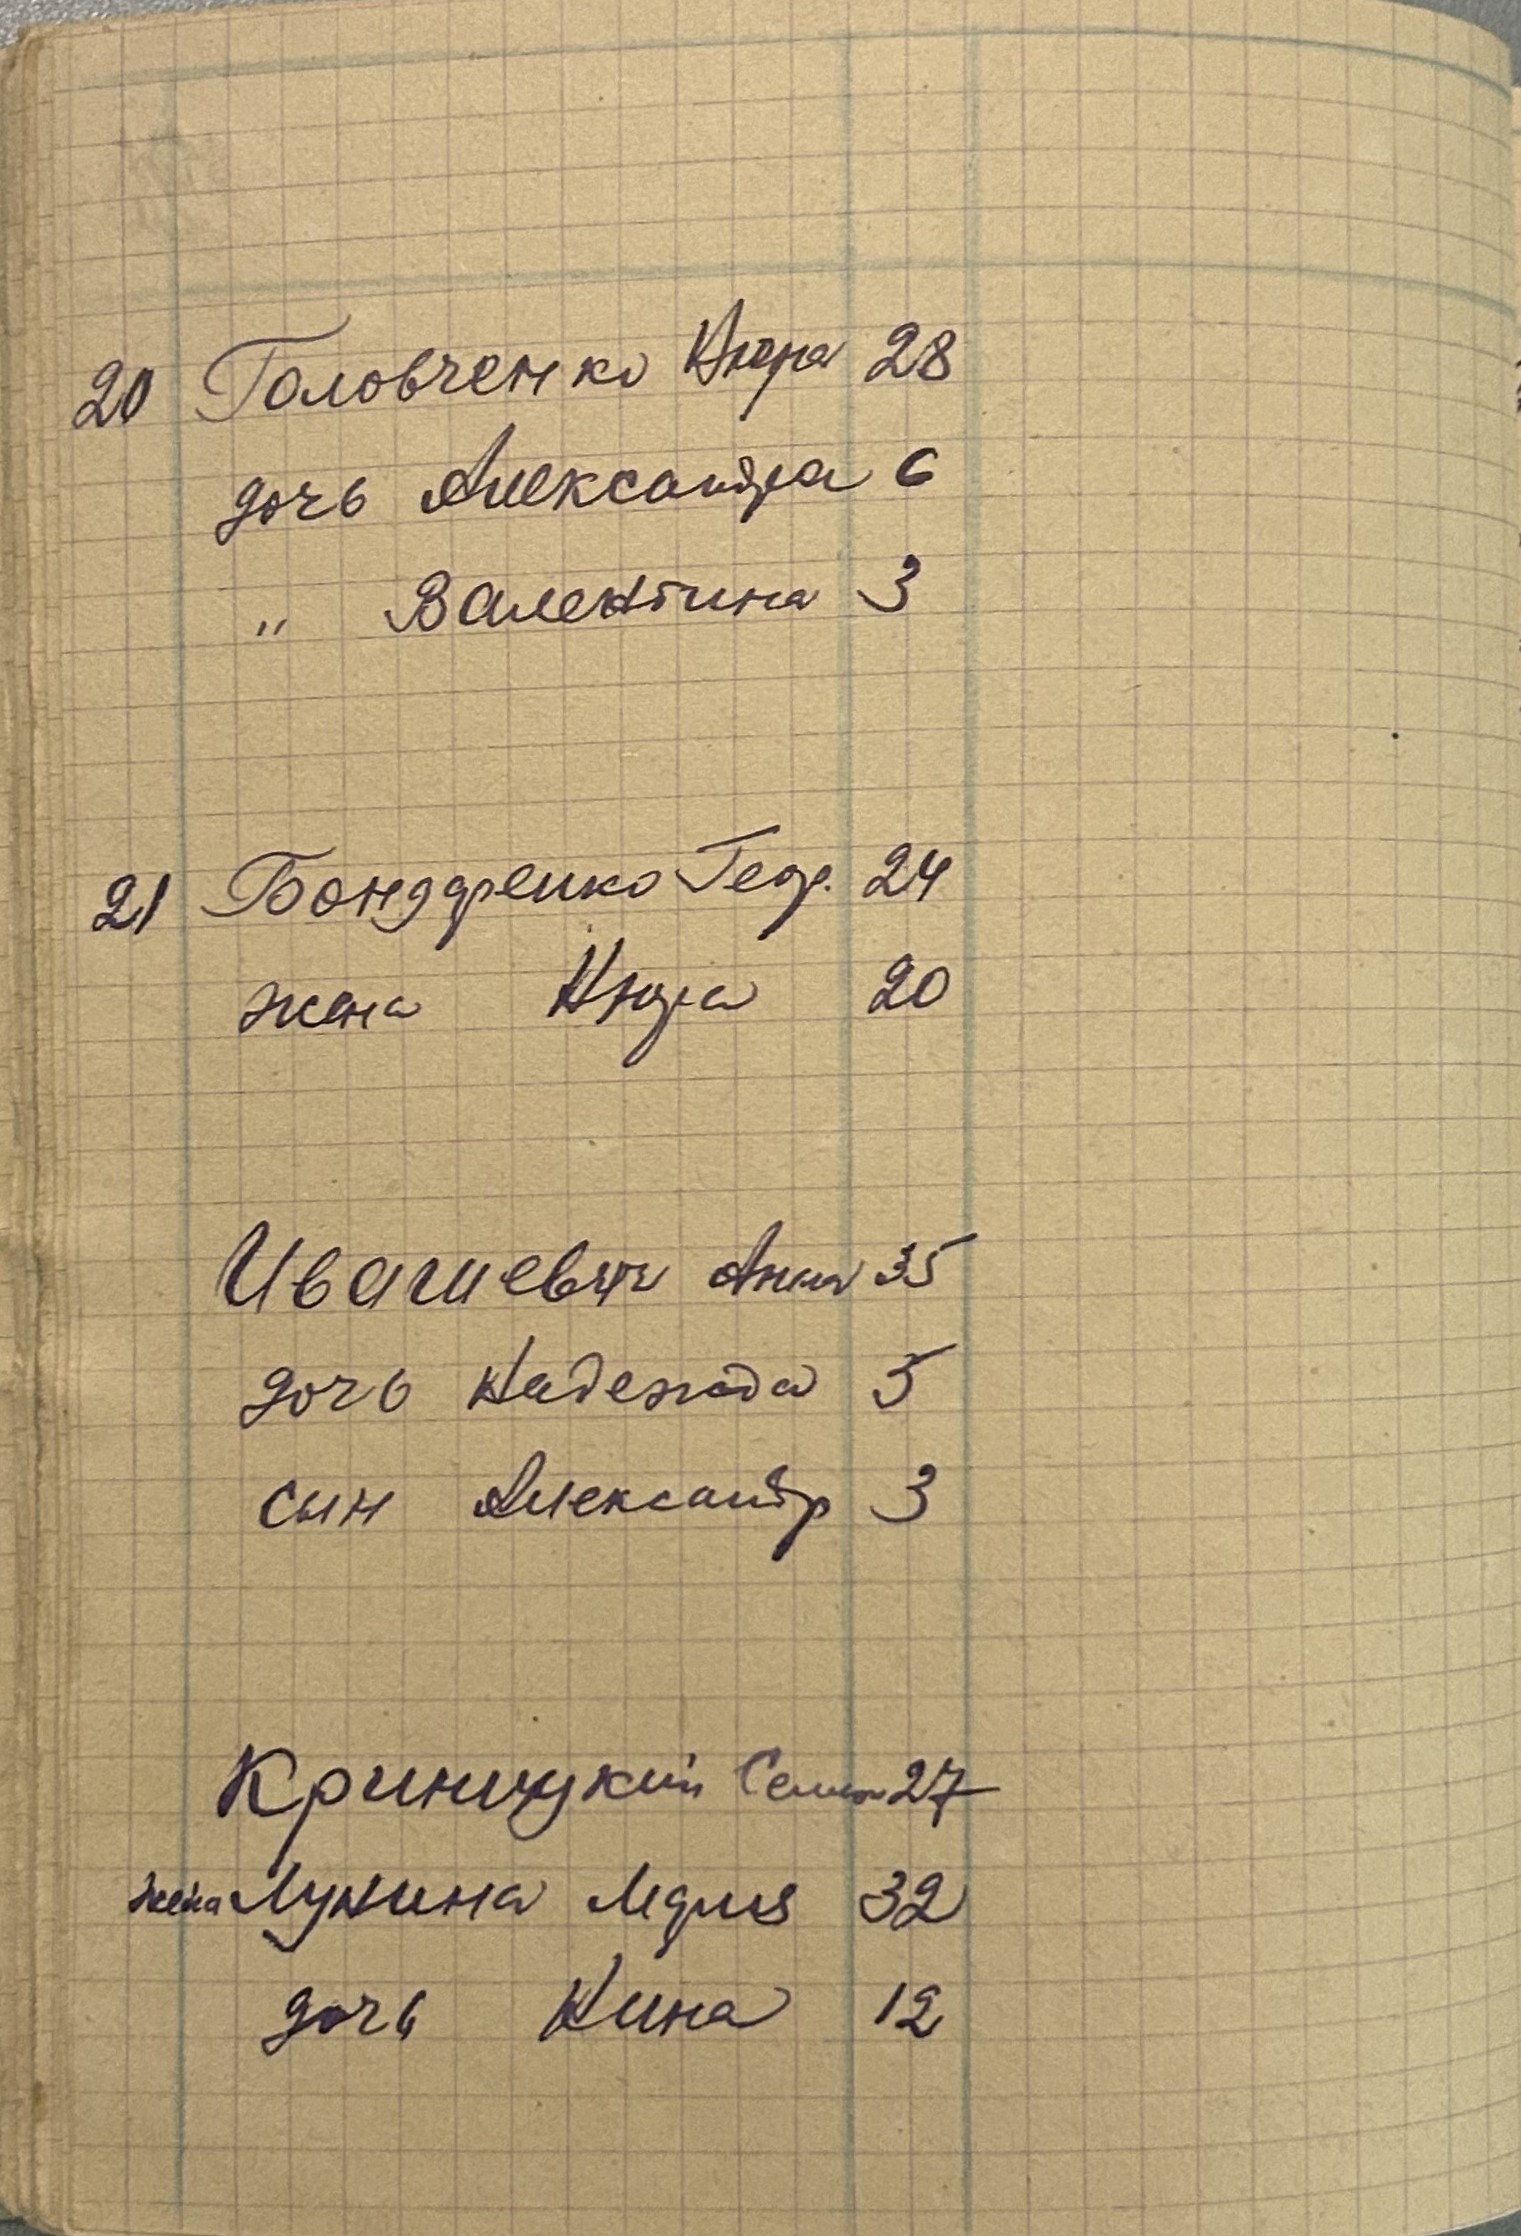 20 Головченко Нюра 28
дочь Александра 6
" Валентина 3
21 Бондаренко Геор. 24
жена Нюра 20
Ивашевич Анна 35
дочь Надежда 5
сын Александр 3
Криницкий Семен 27
жена Лунина Мария 32
дочь Нина 12